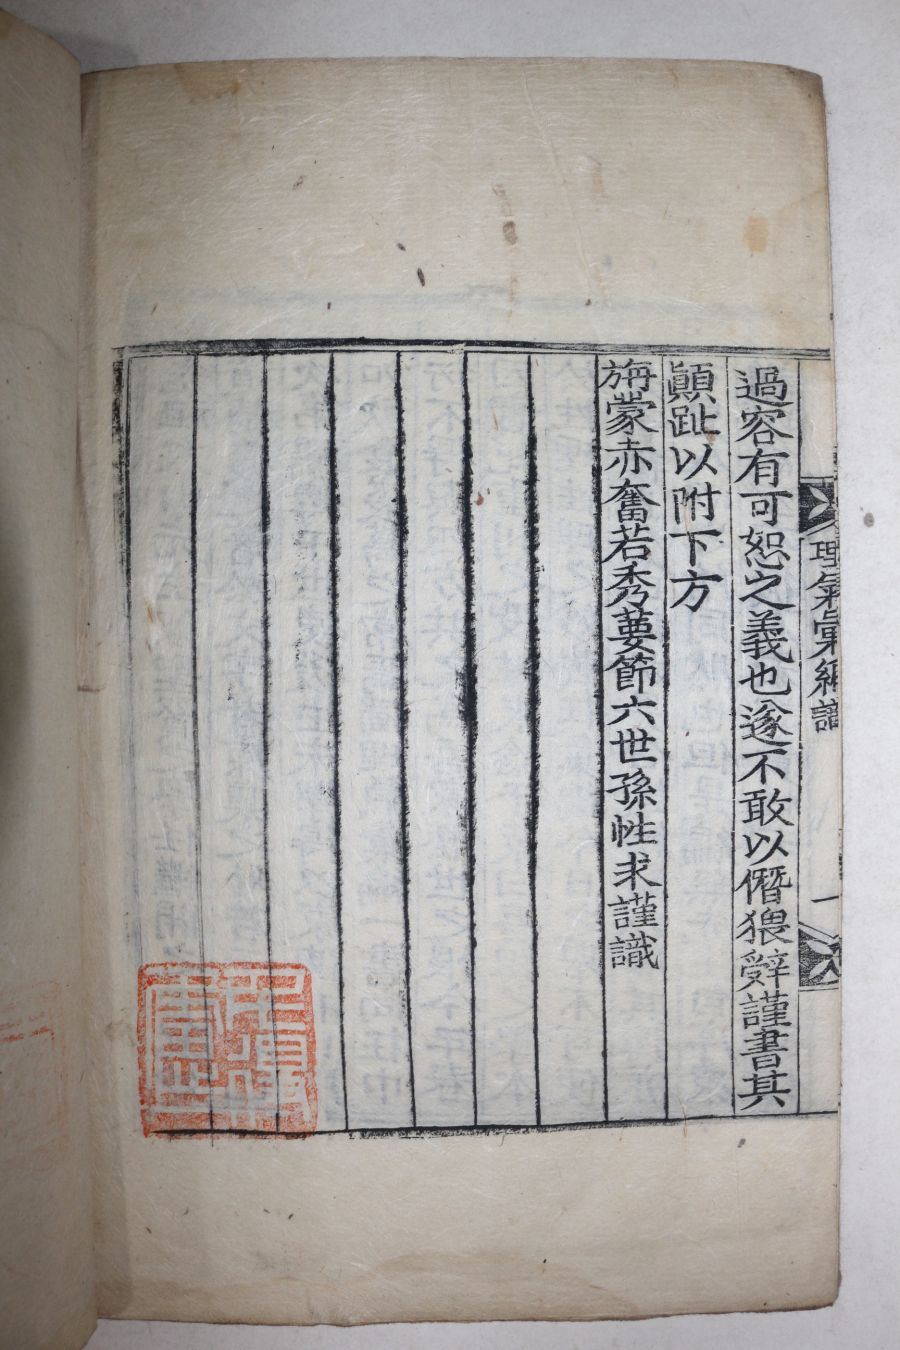 過容有可恕之義也遂不敢以僭猥辭謹書其
顚趾以附下方
旃蒙赤奮若秀葽節六世孫性求謹識
理氣彙編識
一